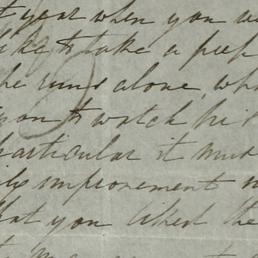 t year when you w
like to take a peep
he runs alone, wh
you to watch his
particular it must
his improvement
that you liked the